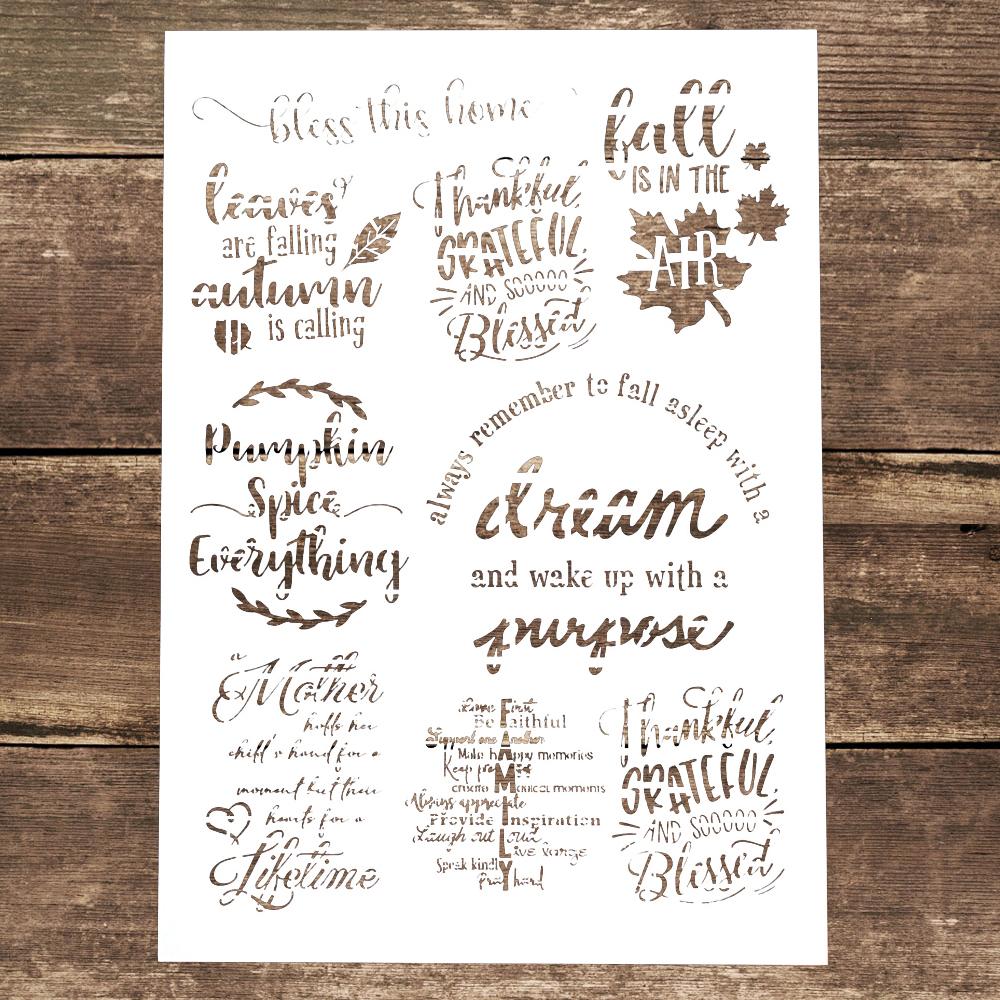 bless this home
leaves
are falling
autumn
is calling
Thankful,
GRATEFUL,
AND SOOOOO
Blessed
fall
IS IN THE
AIR
Pumpkin
Spice
Everything
always remember to fall asleep with a
dream
and wake up with a
purpose
a
Mother
holds her
child's hand for a
moment but their
hearts for a
Lifetime
Love First
Be Faithful
Support one Another
Make happy memories
Keep
create Magical moments
Always appreciate
Provide Inspiration
Laugh out Loud
Live Large
Speak kindly
Pray hard
Thankful,
GRATEFUL,
AND SOOOOO
Blessed